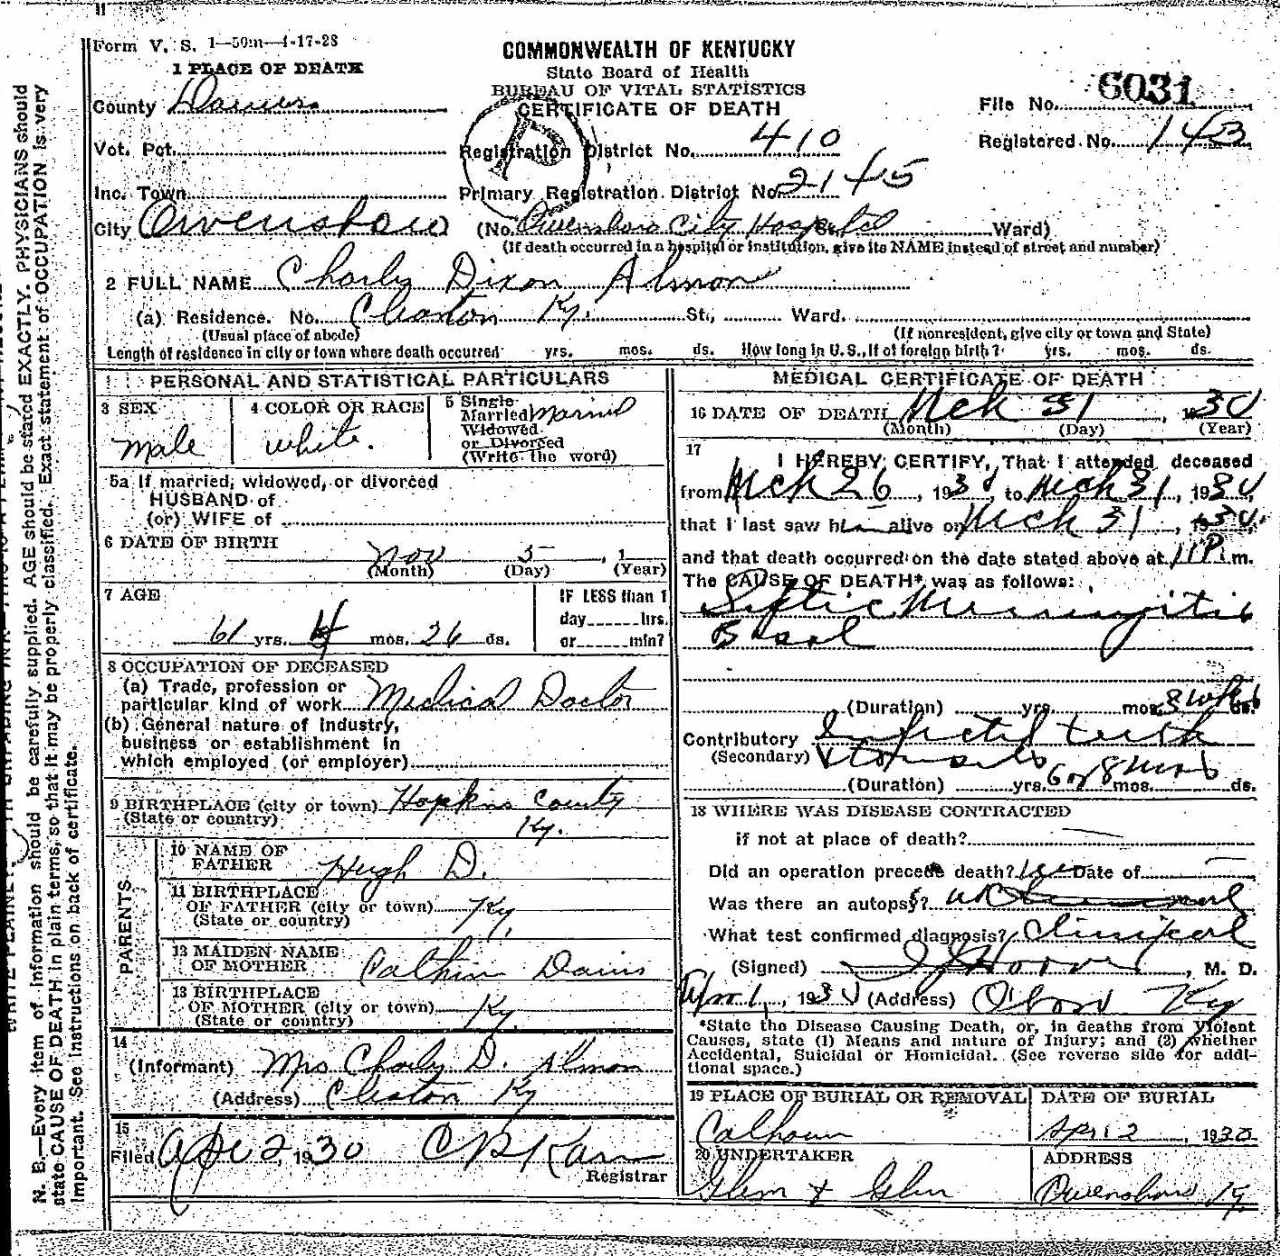 Form V. S. 1—50m—4-17-28
COMMONWEALTH OF KENTUCKY
State Board of Health
BUREAU OF VITAL STATISTICS
CERTIFICATE OF DEATH
File No. 6031
Registered No. 143
1 PLACE OF DEATH
County Daviess
Vot. Pct.
Registration District No. 410
Inc. Town
Primary Registration District No. 2145
City Owensboro (No. Owensboro City Hospital St. Ward)
(If death occurred in a hospital or institution, give its NAME instead of street and number)
2 FULL NAME Charly Dixon Almon
(a) Residence. No. Cleaton Ky. St., Ward.
(Usual place of abode) (If nonresident, give city or town and State)
Length of residence in city or town where death occurred yrs. mos. ds. How long in U.S., if of foreign birth? yrs. mos. ds.
PERSONAL AND STATISTICAL PARTICULARS
3 SEX
male
4 COLOR OR RACE
white.
5 Single
Married
Widowed
or Divorced
(Write the word)
Married
5a If married, widowed, or divorced
HUSBAND of
(or) WIFE of
6 DATE OF BIRTH
Nov 5, 1
(Month) (Day) (Year)
7 AGE
61 yrs. 4 mos. 26 ds.
IF LESS than 1
day hrs.
or min?
8 OCCUPATION OF DECEASED
(a) Trade, profession or
particular kind of work Medical Doctor
(b) General nature of industry,
business or establishment in
which employed (or employer)
9 BIRTHPLACE (city or town) Hopkins County
(State or country) Ky.
PARENTS
10 NAME OF
FATHER Hugh D.
11 BIRTHPLACE
OF FATHER (city or town) Ky.
(State or country)
12 MAIDEN NAME
OF MOTHER Davis
13 BIRTHPLACE
OF MOTHER (city or town) Ky.
(State or country)
14
(Informant) Mrs Charly D. Almon
(Address) Cleaton Ky
15
Filed Apr 2, 1930
Registrar
MEDICAL CERTIFICATE OF DEATH
16 DATE OF DEATH Mch 31, 1930
(Month) (Day) (Year)
17
I HEREBY CERTIFY, That I attended deceased
from Mch 26, 1930, to Mch 31, 1930
that I last saw him alive on Mch 31, 1930.
and that death occurred on the date stated above at 11 P. m.
The CAUSE OF DEATH* was as follows:
Septic Meningitis
Basal
(Duration) yrs. mos. 3 wks ds.
Contributory Infected teeth
(Secondary) & tonsils
(Duration) yrs. 6 or 8 mos mos. ds.
18 WHERE WAS DISEASE CONTRACTED
if not at place of death?
Did an operation precede death? no Date of
Was there an autopsy? no
What test confirmed diagnosis? Clinical
(Signed) Hoover, M. D.
Apr 1, 1930 (Address) Oboro Ky
*State the Disease Causing Death, or, in deaths from Violent
Causes, state (1) Means and nature of Injury; and (2) whether
Accidental, Suicidal or Homicidal. (See reverse side for addi-
tional space.)
19 PLACE OF BURIAL OR REMOVAL
Calhoun
DATE OF BURIAL
Apr 2, 1930
20 UNDERTAKER
Glenn & Glenn
ADDRESS
Owensboro Ky.
N. B.—Every item of information should be carefully supplied. AGE should be stated EXACTLY. PHYSICIANS should
state CAUSE OF DEATH in plain terms, so that it may be properly classified. Exact statement of OCCUPATION is very
important. See instructions on back of certificate.